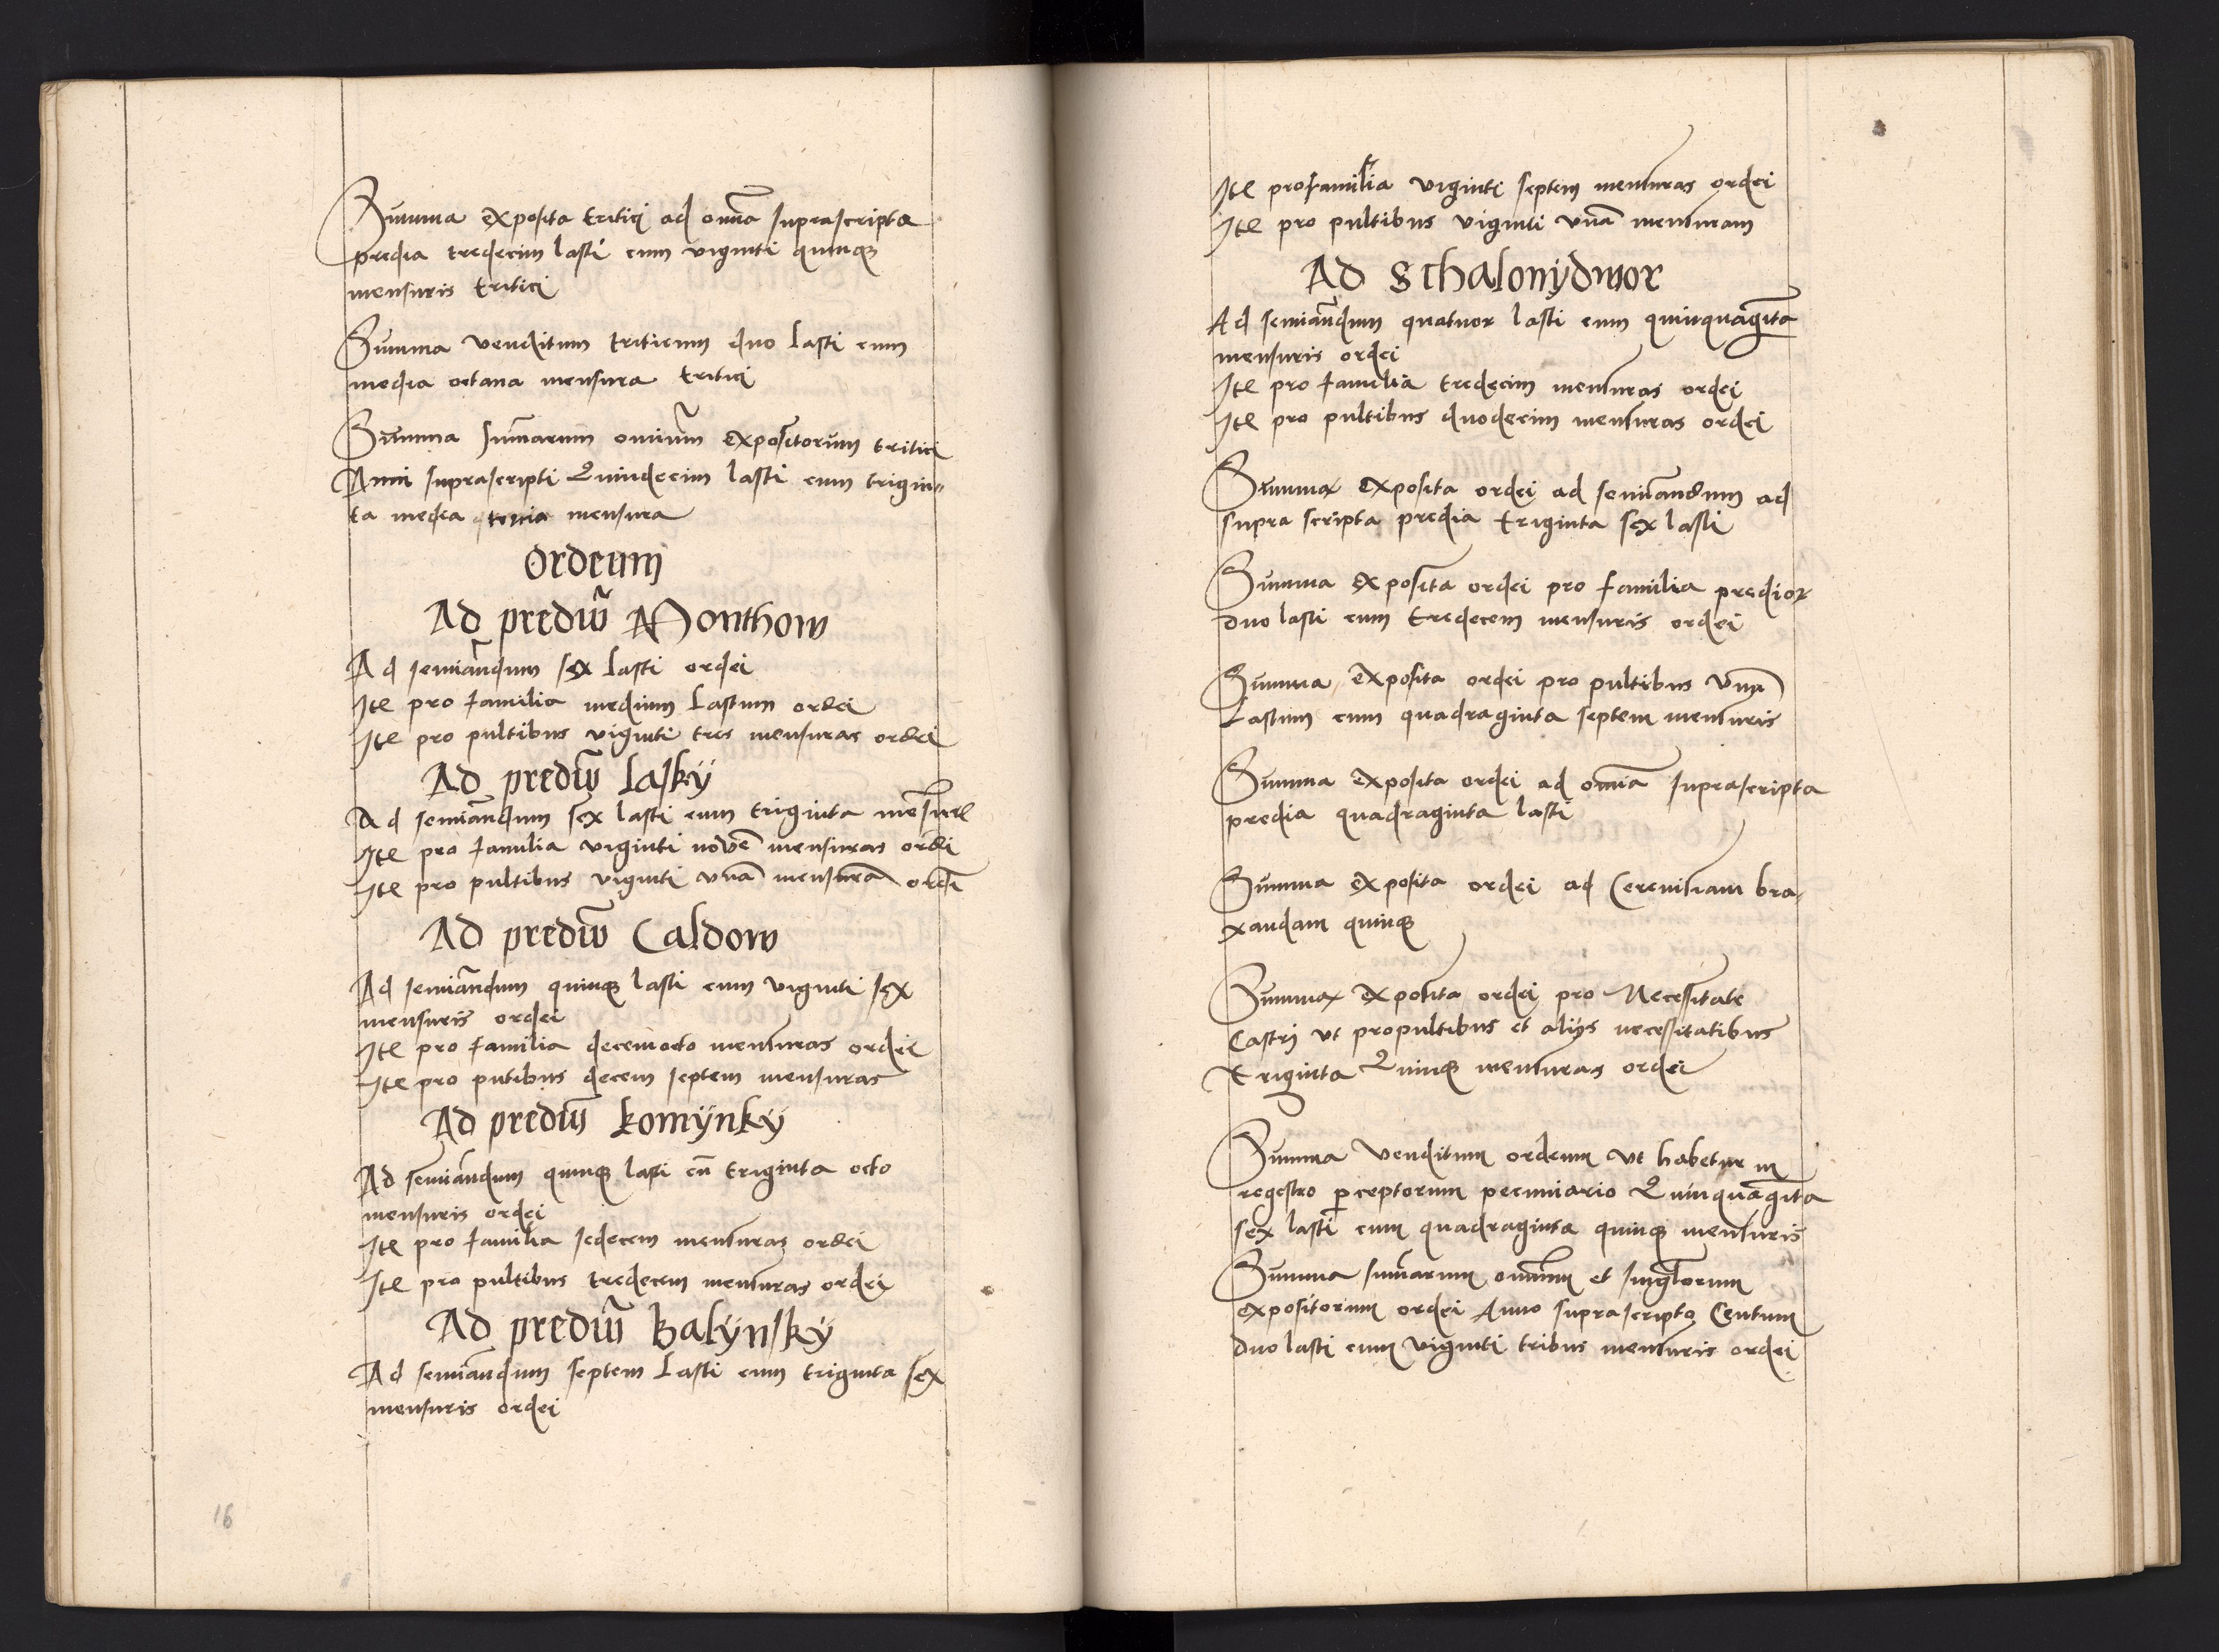 Summa exposita tritici ad oma̅ suprascripta
predia tredecim lasti cum viginti quinq
mensuris tritici
Summa venditum triticum duo lasti cum
media octana mensura tritici
Summa sum̅arum omium̅ expositorum tritici
Anni suprascripti Quindecim lasti cum trigin„
ta media mensura
Ordeum
Ad prediu̅ Monthow
Ad semina̅ndum sex lasti ordei
Ite pro familia medium Lastum ordei
Ite pro pultibus viginti tres mensuras ordei
Ad prediu̅ Lasky
Ad semina̅ndum sex lasti cum triginta mensur
Ite pro familia viginti nove̅ mensuras ordei
Ite pro pultibus viginti vna̅ mensura̅ ordei
Ad prediu̅ Caldow
Ad semina̅ndum quinq lasti cum viginti sex
mensuris ordei
Ite pro familia decemocto mensuras ordei
Ite pro putibus decem septem mensuras
Ad prediu̅ komÿnkÿ
Ad semina̅ndum quinq lasti cu̅ triginta octo
mensuris ordei
Ite pro familia sedecem mensuras ordei
Ite pro pultibus tredecem mensuras ordei
Ad prediu̅ kalÿnskÿ
Ad semina̅ndum septem Lasti cum triginta sex
mensuris ordei
16
Ite profamilia viginti septem mensuras ordei
Ite pro pultibus viginti vna̅ mensuram
Ad Schalonÿdwor
Ad semina̅ndum quatuor lasti cum quinquagi̅ta
mensuris ordei
Ite pro familia tredecim mensuras ordei
Ite pro pultibus duodecim mensuras ordei
Summa exposita ordei ad semina̅ndum ad
supra scripta predia triginta sex lasti
Summa exposita ordei pro familia predior
duo lasti cum tredecem mensuris ordei
Summa exposita ordei pro pultibus vnu̅
Lastum cum quadraginta septem mensuris
Summa exposita ordei ad omnia suprascripta
predia quadraginta lasti
Summa exposita ordei ad Cerevisiam bra„
xandam quinq
Summa exposita ordei pro Necessitate
Castri vt propultibus et alÿs necessitatibus
Triginta Quinq mensuras ordei
Summa venditum ordeum vt habetur in
regestro perceptorum pecuniario Quinquagi̅ta
sex lasti cum quadraginta quinq mensuris
Summa sum̅arum omnium et singlorum
expositorum ordei Anno suprascripto Centum
duo lasti cum viginti tribus mensuris ordei